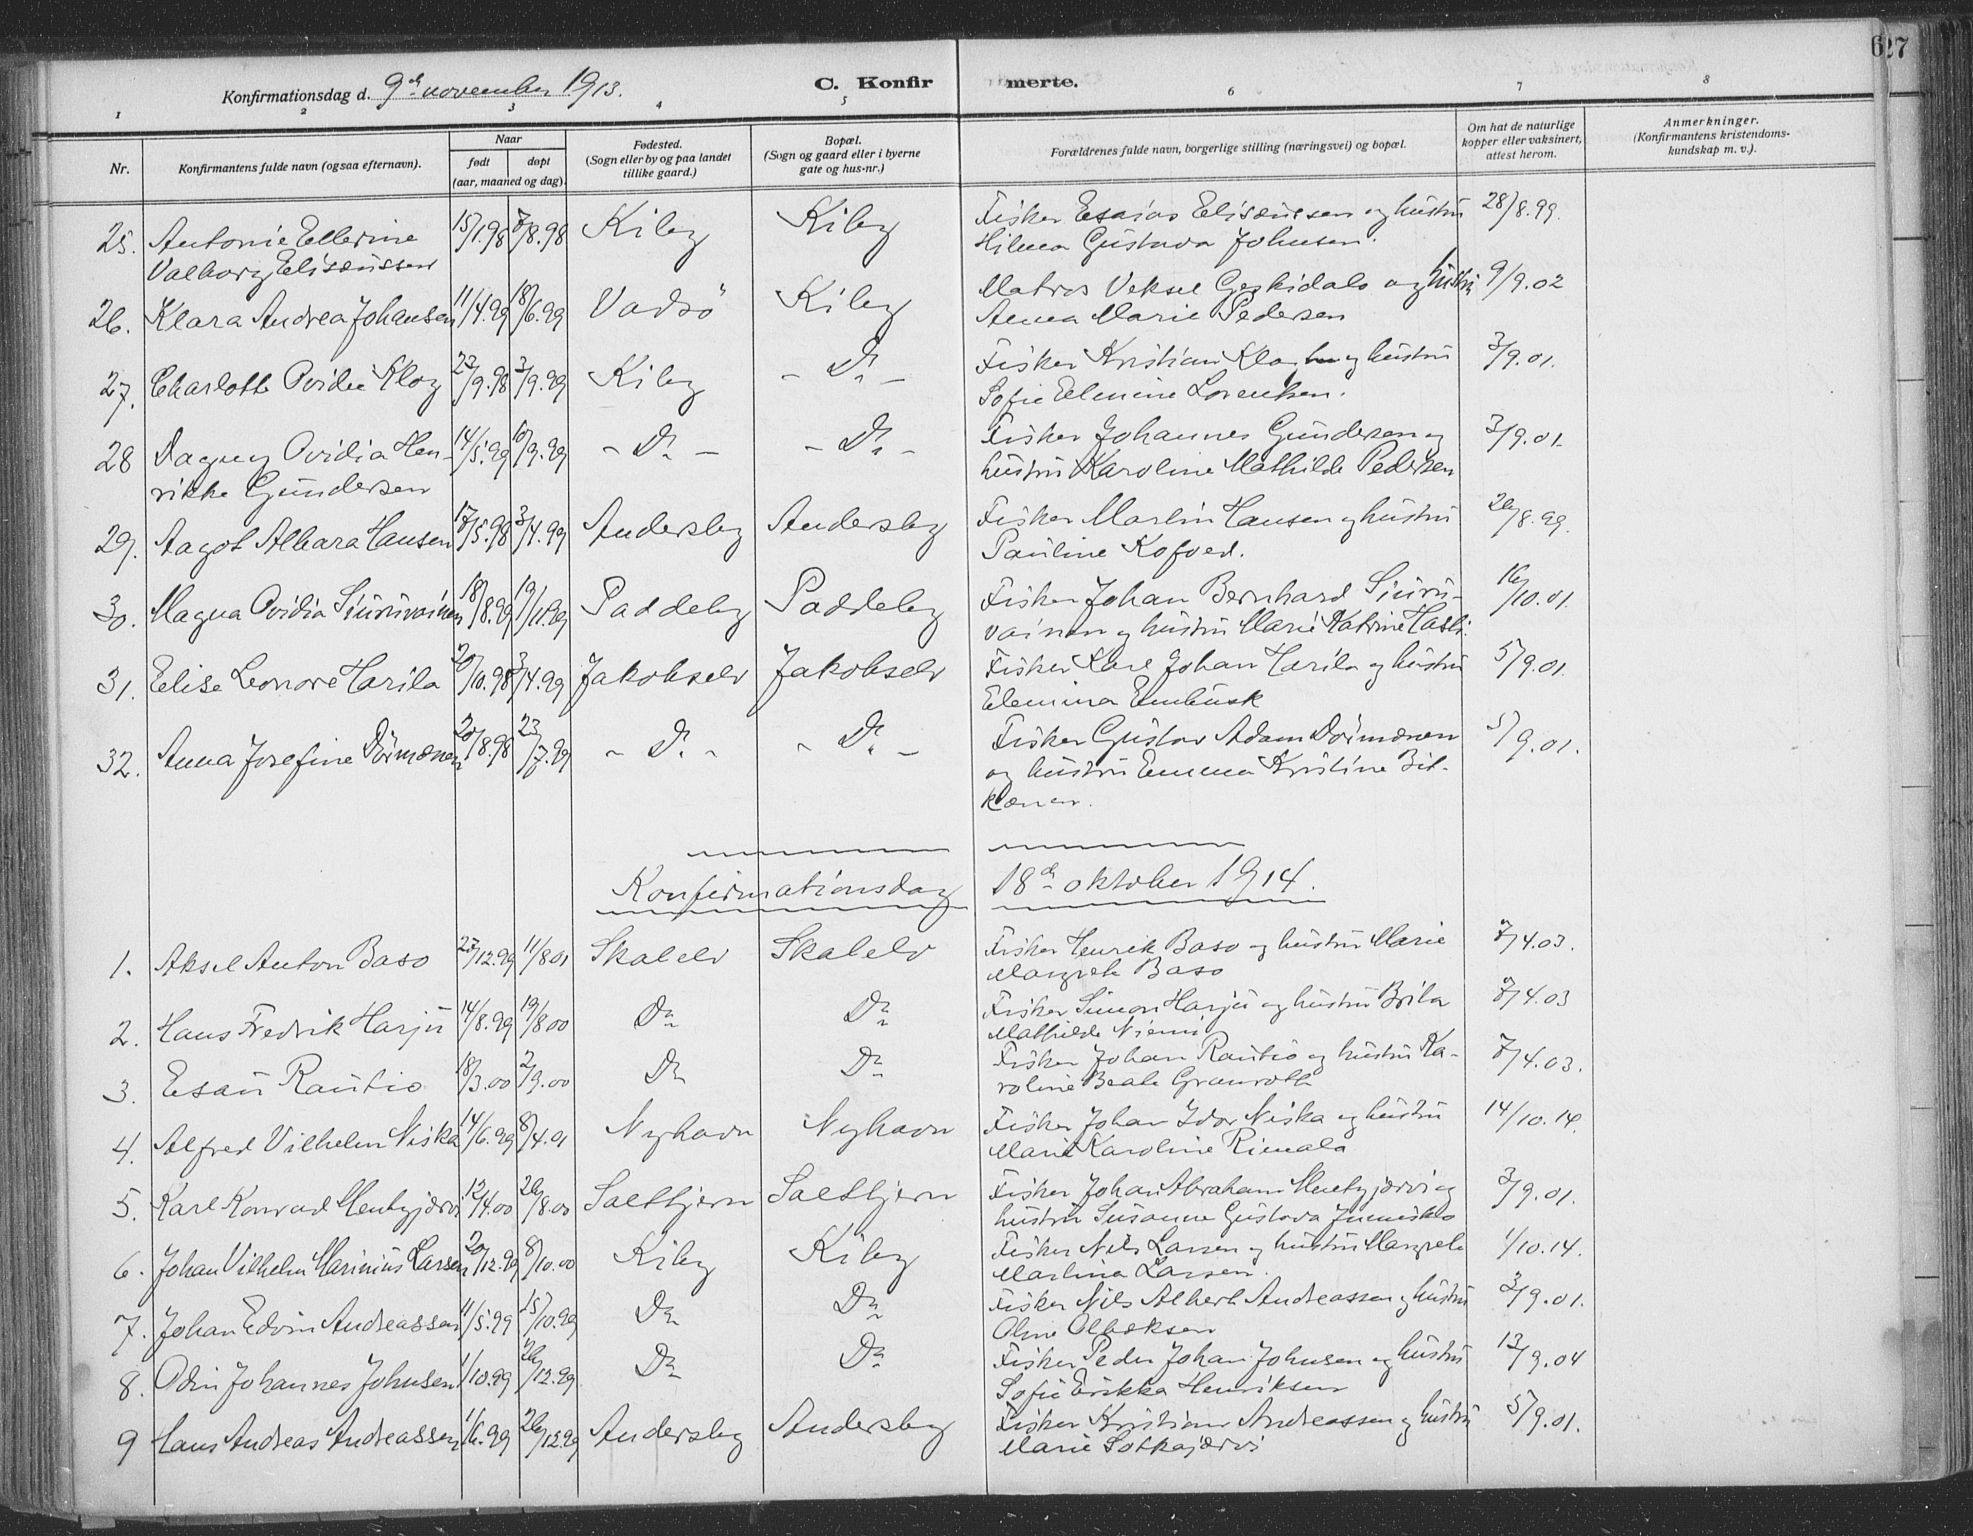 627
Konfirmationsdag d. 9de november 1913. C. Konfirmerte.
1 2 3 4 5 6 7 8
Nr. Konfirmantens fulde navn (ogsaa efternavn). Naar født døpt (aar, maaned og dag). Fødested. (Sogn eller by og paa landet tillike gaard.) Bopæl. (Sogn og gaard eller i byerne gate og hus-nr.) Forældrenes fulde navn, borgerlige stilling (næringsvei) og bopæl. Om hat de naturlige kopper eller vaksinert, attest herom. Anmerkninger. (Konfirmantens kristendomskundskap m. v.).
25. Antonie Ellerine 15/1.98 7/8.98 Kiby Kiby Fisker Esaias Elisæussen og hustru 28/8.99.
Valborg Elisæussen Hilma Gustava Johnsen.
26. Klara Andrea Johansen 11/4.99 18/6.99 Vadsö Kiby Matros Veksel og hustru 9/9.02
Anna Marie Pedersen
27. Charlotte Ovidie Klog 22/9.98 3/9.99 Kiby - Do - Fisker Kristian Klog og hustru 3/9.01.
Sofie Elmine Lorentsen.
28 Dagny Ovidia Hen- 14/5.99 10/9.99 - Do - - Do - Fisker Johannes Gundersen og 3/9.01.
rikke Gundersen hustru Karoline Mathilde Pedersen
29. Aagot Albara Hansen 17/5.98 3/4.99 Andersby Andersby Fisker Martin Hansen og hustru 26/8.99.
Pauline Kofoed.
30. Magna Ovidia Siuruvainen 18/8.99 19/11.99 Paddeby Paddeby Fisker Johan Bernhard Siuru- 16/10.01.
vainen og hustru Marie Katrine
31. Elise Leonore Harila 20/10.98 3/4.99 Jakobselv Jakobselv Fisker Karl Johan Harila og hustru 5/9.01.
Elemina Embusk
32. Anna Josefine Dörmænen 20/8.98 23/7.99 - Do - - Do - Fisker Gustav Adam Dörmænen 5/9.01.
og hustru Emma Kristine Bit-
kænen.
Konfirmationsdag 18de oktober 1914.
1. Aksel Anton Baso 27/12.99 11/8.01 Skalelv Skalelv Fisker Henrik Baso og hustru Marie 7/4.03.
Margrete Baso
2. Hans Fredrik Harju 14/8.99 19/8.00 Do Do Fisker Simon Harju og hustru Brita 7/4.03
Mathilde Niemi
3. Esau Rautio 18/3.00 2/9.00 Do Do Fisker Johan Rautio og hustru Ka- 7/4.03.
roline Beate Granroth
4. Alfred Vilhelm Niska 14/6.99 8/4.01 Nyhavn Nyhavn Fisker Johan Idor Niska og hustru 14/10.14.
Marie Karoline Rimala
5. Karl Konrad Mentyjærvi 12/4.00 26/8.00 Saltbjern Saltbjern Fisker Johan Abraham Mentyjærvi og 3/9.01.
hustru Susanne Gustava Junnisko
6. Johan Vilhelm Marinius Larsen 20/12.99 8/10.00 Kiby Kiby Fisker Nils Larsen og hustru Margrete 1/10.14.
Martina Larsen.
7. Johan Edvin Andreassen 11/5.99 15/10.99 Do Do Fisker Nils Albert Andreassen og hustru 3/9.01.
Oline Olbeksen
8. Odin Johannes Johnsen 1/10.99 26/12.99 Do Do Fisker Peder Johan Johnsen og hustru 12/9.04
Sofie Erikka Henriksen
9 Hans Andreas Andreassen 1/6.99 26/12.99 Andersby Andersby Fisker Kristian Andreassen og hustru 5/9.01.
Marie Sotkajærvi